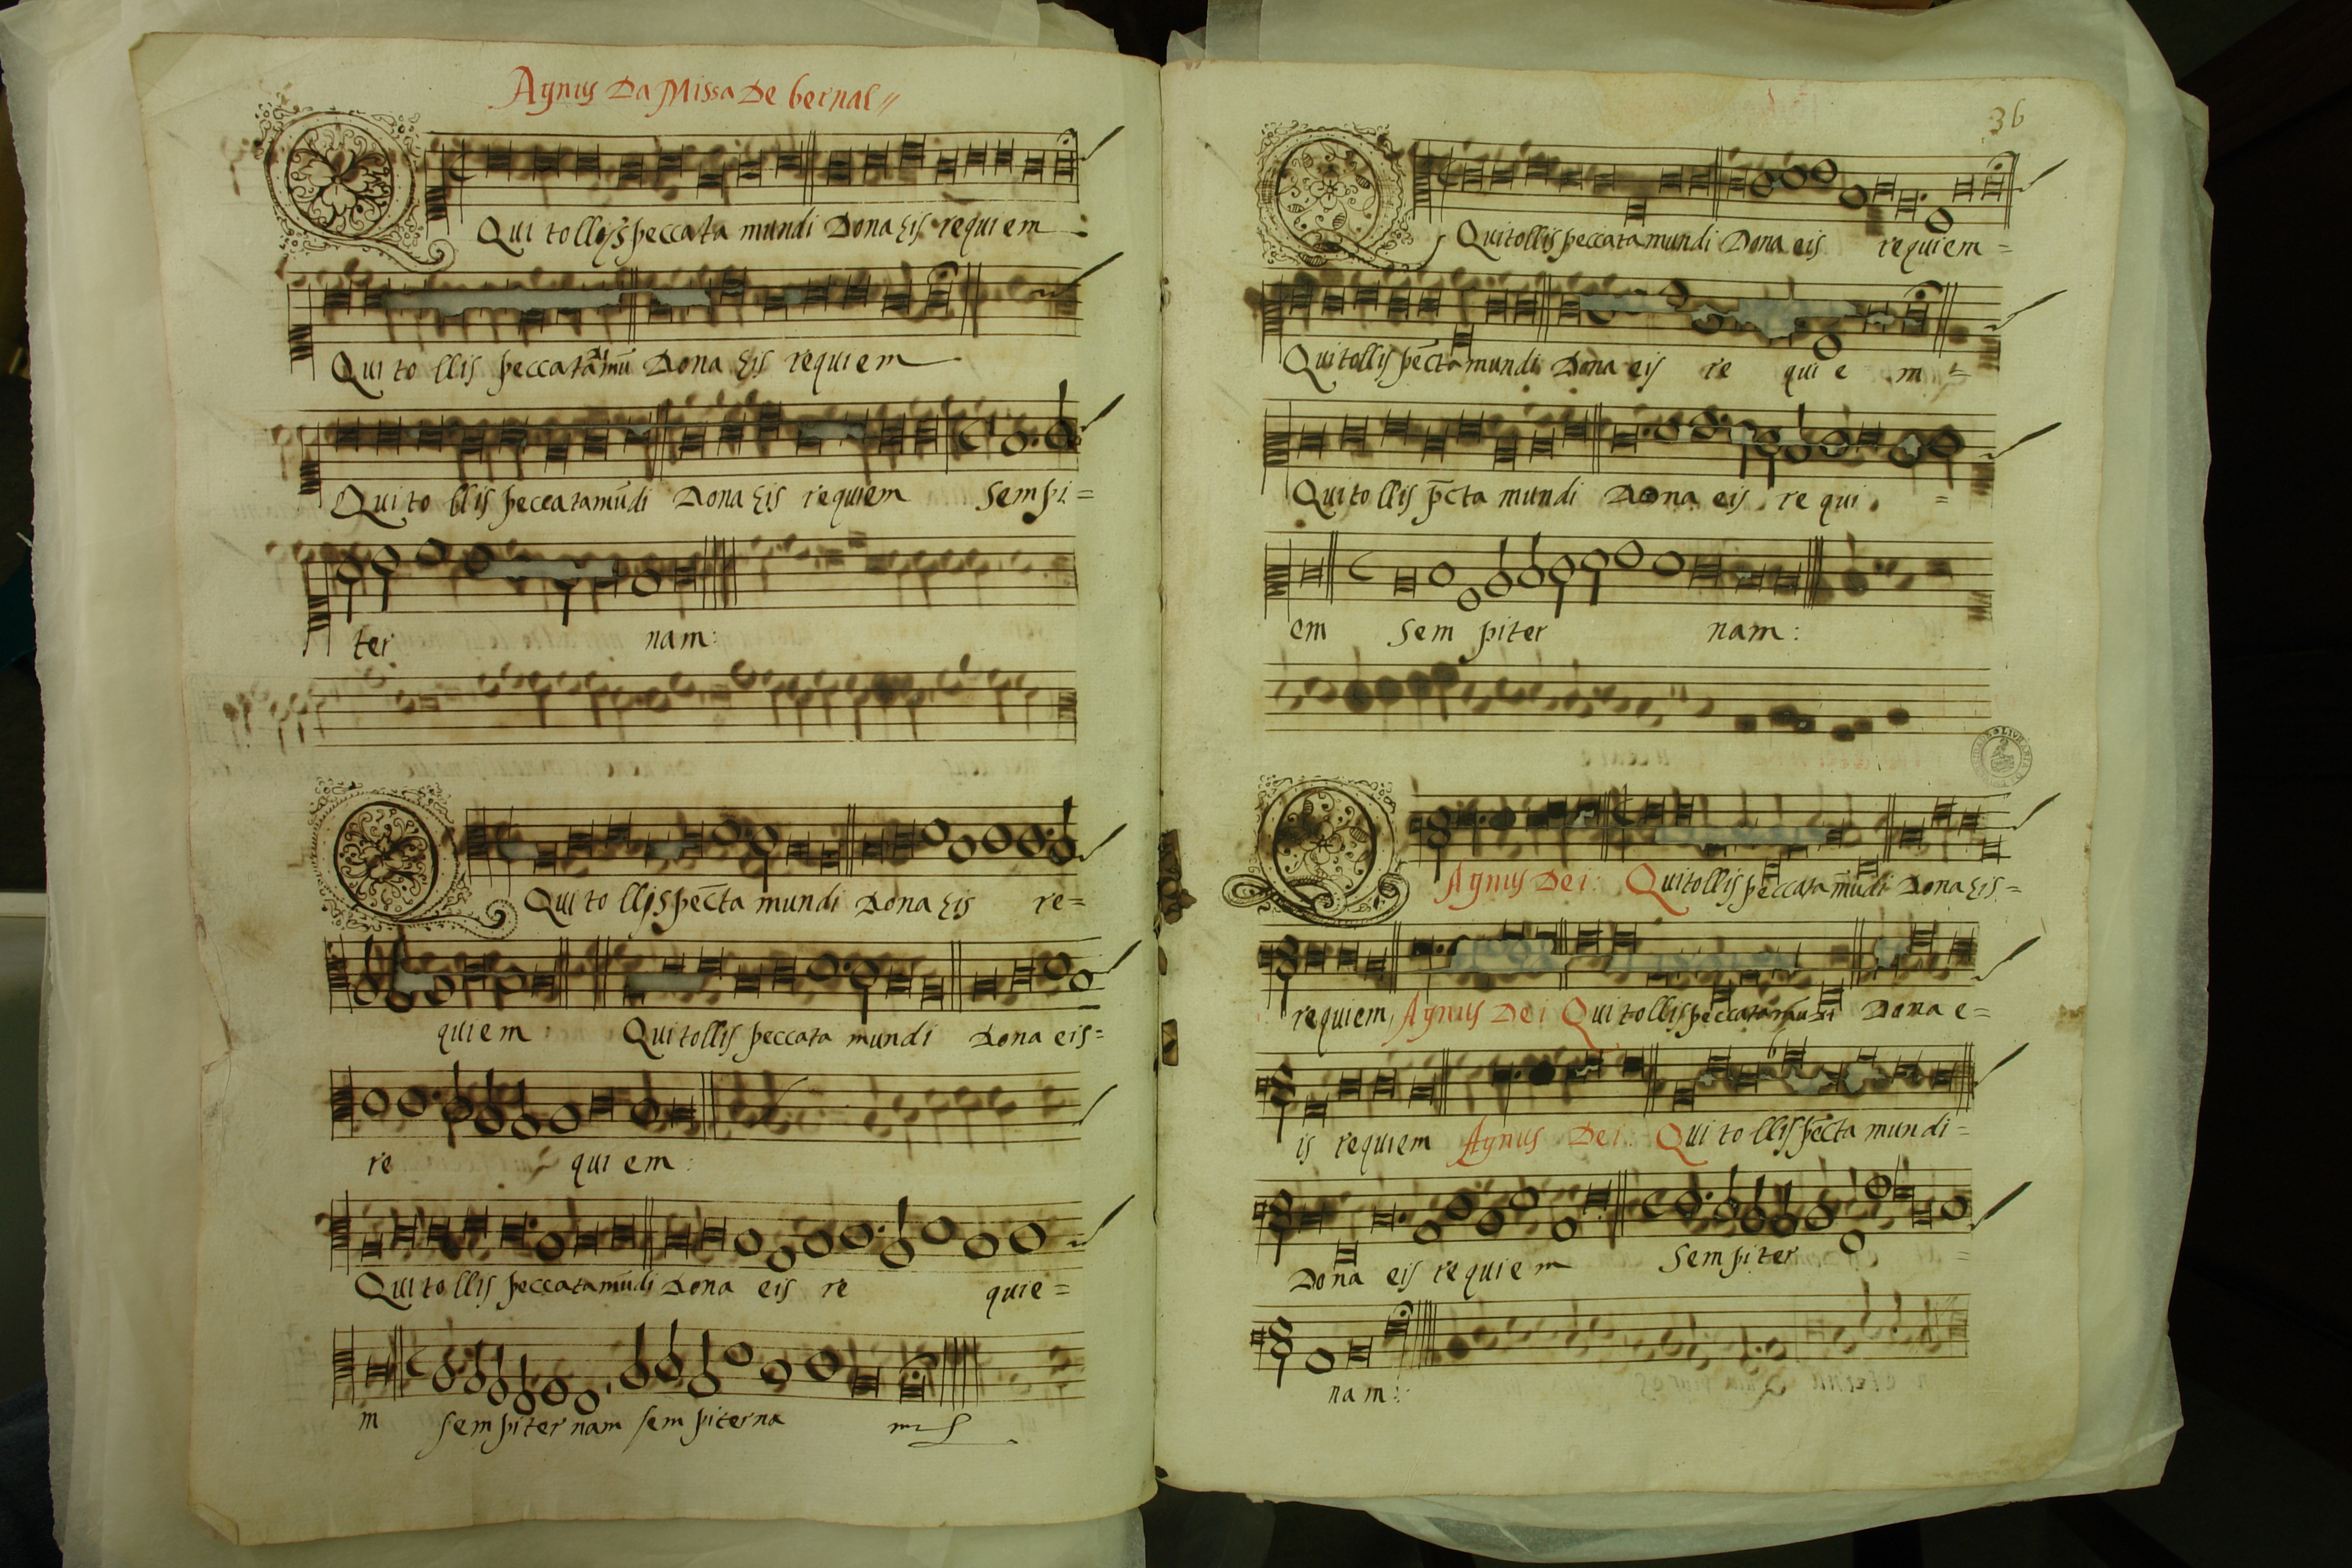 Agnus Da Missa De bernal
Qui tollis peccata mundi Dona eis requiem
Qui to llis peccata mū Dona eis requiem
Qui to llis peccata mūdi Dona eis requiem Sempi=
ter nam:
Qui to llis pecta mundi Dona eis re=
quiem: Qui tollis peccata mundi Dona eis=
re qui em:
Qui to llis peccata mūdi Dona eis re quie=
m sempiter nam sempiterna m
36
Qui tollis peccata mundi Dona eis requiem=
Qui tollis pecta mundi Dona eis re qui e m
Qui to llis p̄cta mundi Dona eis re qui =
em Sem piter nam:
Agnus Dei: Qui tollis peccata mūdi Dona eis=
requiem, Agnus Dei Qui tollis peccata mūdi Dona e=
is requiem Agnus Dei: Qui to llis p̄ecta mundi=
Dona eis requiem Sempiter =
nam: